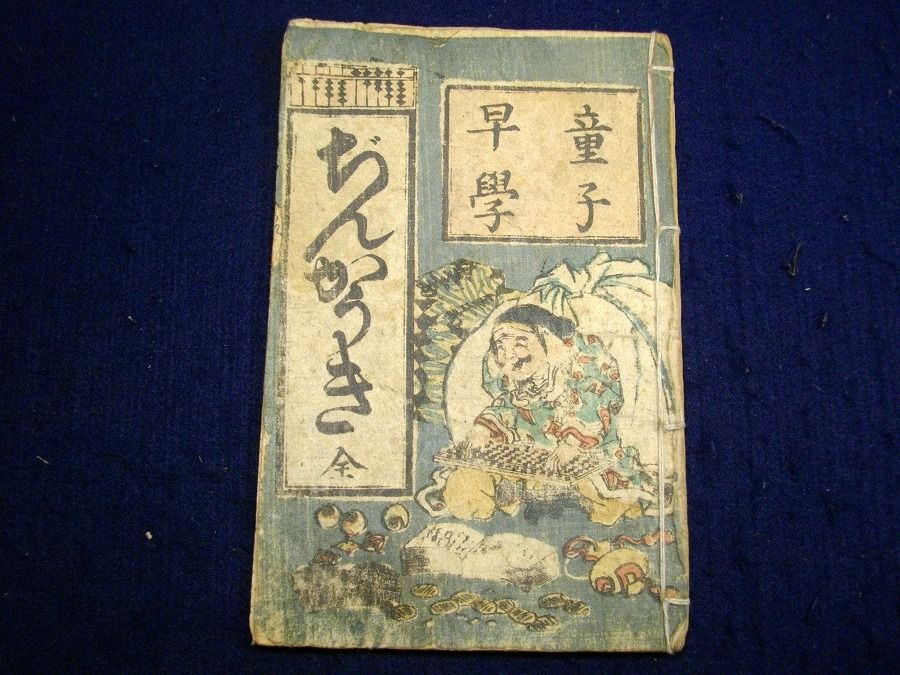 童子
早學
ぢんかうき 全